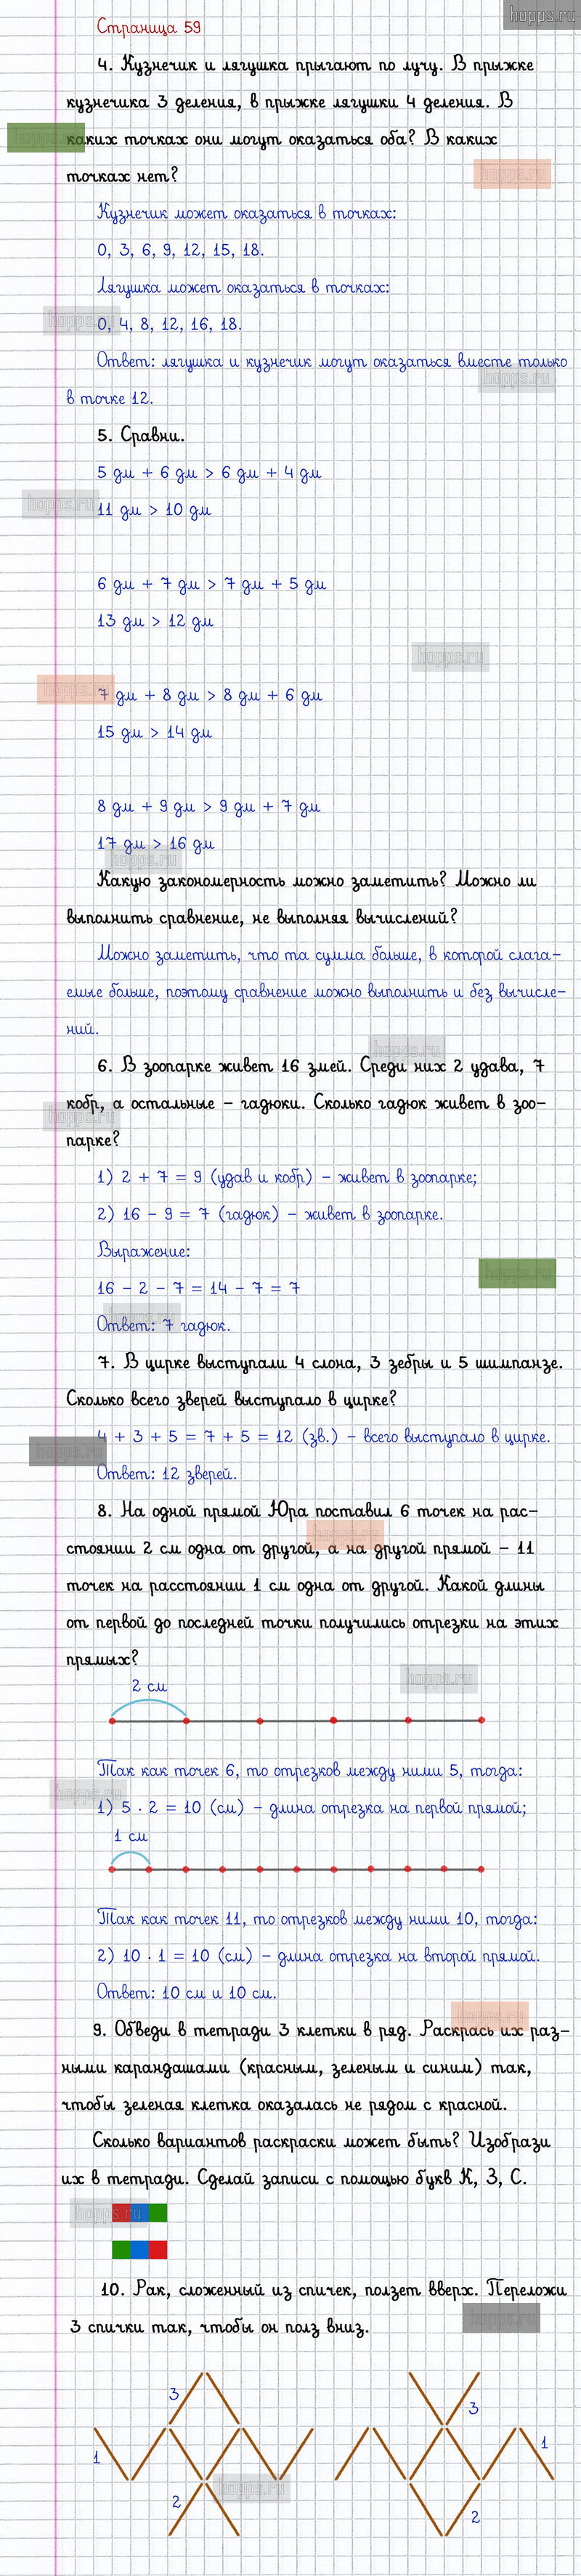 hopps.ru
Страница 59
4. Кузнечик и лягушка прыгают по лучу. В прыжке
кузнечика 3 деления, в прыжке лягушки 4 деления. В
каких точках они могут оказаться оба? В каких
точках нет?
hopps.ru
Кузнечик может оказаться в точках:
0, 3, 6, 9, 12, 15, 18.
Лягушка может оказаться в точках:
hopps.ru
0, 4, 8, 12, 16, 18.
Ответ: лягушка и кузнечик могут оказаться вместе только
hopps.ru
в точке 12.
5. Сравни.
5 дм + 6 дм > 6 дм + 4 дм
hopps.ru
11 дм > 10 дм
6 дм + 7 дм > 7 дм + 5 дм
13 дм > 12 дм
hopps.ru
hopps.ru
7 дм + 8 дм > 8 дм + 6 дм
15 дм > 14 дм
8 дм + 9 дм > 9 дм + 7 дм
17 дм > 16 дм
hopps.ru
Какую закономерность можно заметить? Можно ли
выполнить сравнение, не выполняя вычислений?
Можно заметить, что та сумма больше, в которой слага-
емые больше, поэтому сравнение можно выполнить и без вычисле-
ний.
hopps.ru
6. В зоопарке живет 16 змей. Среди них 2 удава, 7
кобр, а остальные - гадюки. Сколько гадюк живет в зоо-
hopps.ru
парке?
1) 2 + 7 = 9 (удав и кобр) - живет в зоопарке;
2) 16 - 9 = 7 (гадюк) - живет в зоопарке.
Выражение:
16 - 2 - 7 = 14 - 7 = 7
hopps.ru
Ответ: 7 гадюк.
7. В цирке выступали 4 слона, 3 зебры и 5 шимпанзе.
Сколько всего зверей выступало в цирке?
4 + 3 + 5 = 7 + 5 = 12 (зв.) - всего выступало в цирке.
Ответ: 12 зверей.
8. На одной прямой Юра поставил 6 точек на рас-
стоянии 2 см одна от другой, а на другой прямой - 11
точек на расстоянии 1 см одна от другой. Какой длины
от первой до последней точки получились отрезки на этих
прямых?
hopps.ru
2 см
Так как точек 6, то отрезков между ними 5, тогда:
hopps.ru
1) 5 · 2 = 10 (см) - длина отрезка на первой прямой;
1 см
Так как точек 11, то отрезков между ними 10, тогда:
2) 10 · 1 = 10 (см) - длина отрезка на второй прямой.
Ответ: 10 см и 10 см.
hopps.ru
9. Обведи в тетради 3 клетки в ряд. Раскрась их раз-
ными карандашами (красным, зеленым и синим) так,
чтобы зеленая клетка оказалась не рядом с красной.
Сколько вариантов раскраски может быть? Изобрази
их в тетради. Сделай записи с помощью букв К, З, С.
hopps.ru
10. Рак, сложенный из спичек, ползет вверх. Переложи
hopps.ru
3 спички так, чтобы он полз вниз.
3
3
1
1
hopps.ru
2
2